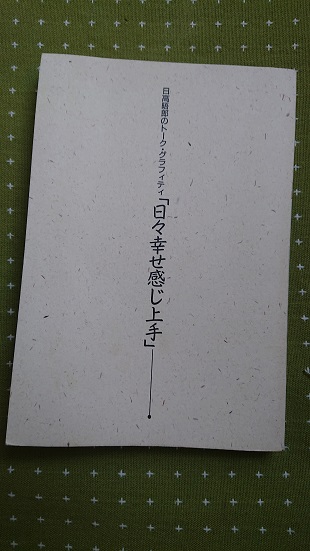 日高晤郎のトーク・グラフィティ「日々幸せ感じ上手」